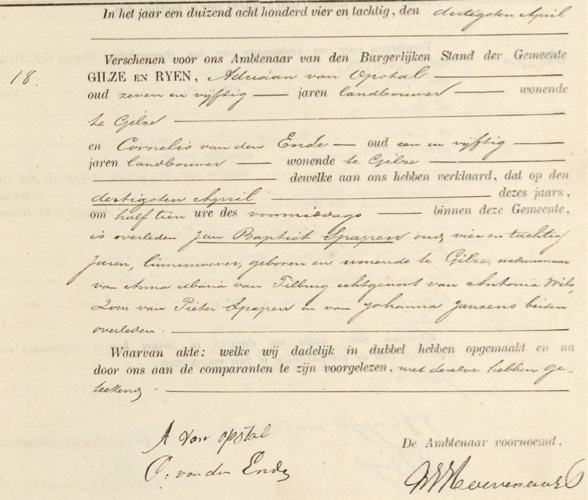 In het jaar een duizend acht honderd vier en tachtig, den dertigsten April
Verschenen voor ons Ambtenaar van den Burgerlijken Stand der Gemeente
18. GILZE EN RYEN, Adriaan van Opstal
oud zeven en vijftig jaren landbouwer wonende
te Gilze
en Cornelis van den Ende oud een en vijftig
jaren landbouwer wonende te Gilze
dewelke aan ons hebben verklaard, dat op den
dertigsten April dezes jaars,
om half tien ure des voormiddags binnen deze Gemeente,
is overleden Jan Baptist Spapen oud vier en tachtig
jaren, linnenwever, geboren en wonende te Gilze, weduwnaar
van Anna Maria van Tilburg echtgenoot van Antonia
Zoon van Pieter Spapen en van Johanna Jansens beiden
overleden.
Waarvan akte: welke wij dadelijk in dubbel hebben opgemaakt en na
door ons aan de comparanten te zijn voorgelezen, met dezelve hebben ge-
teekend
A van opstal
C: van den Ende
De Ambtenaar voornoemd,